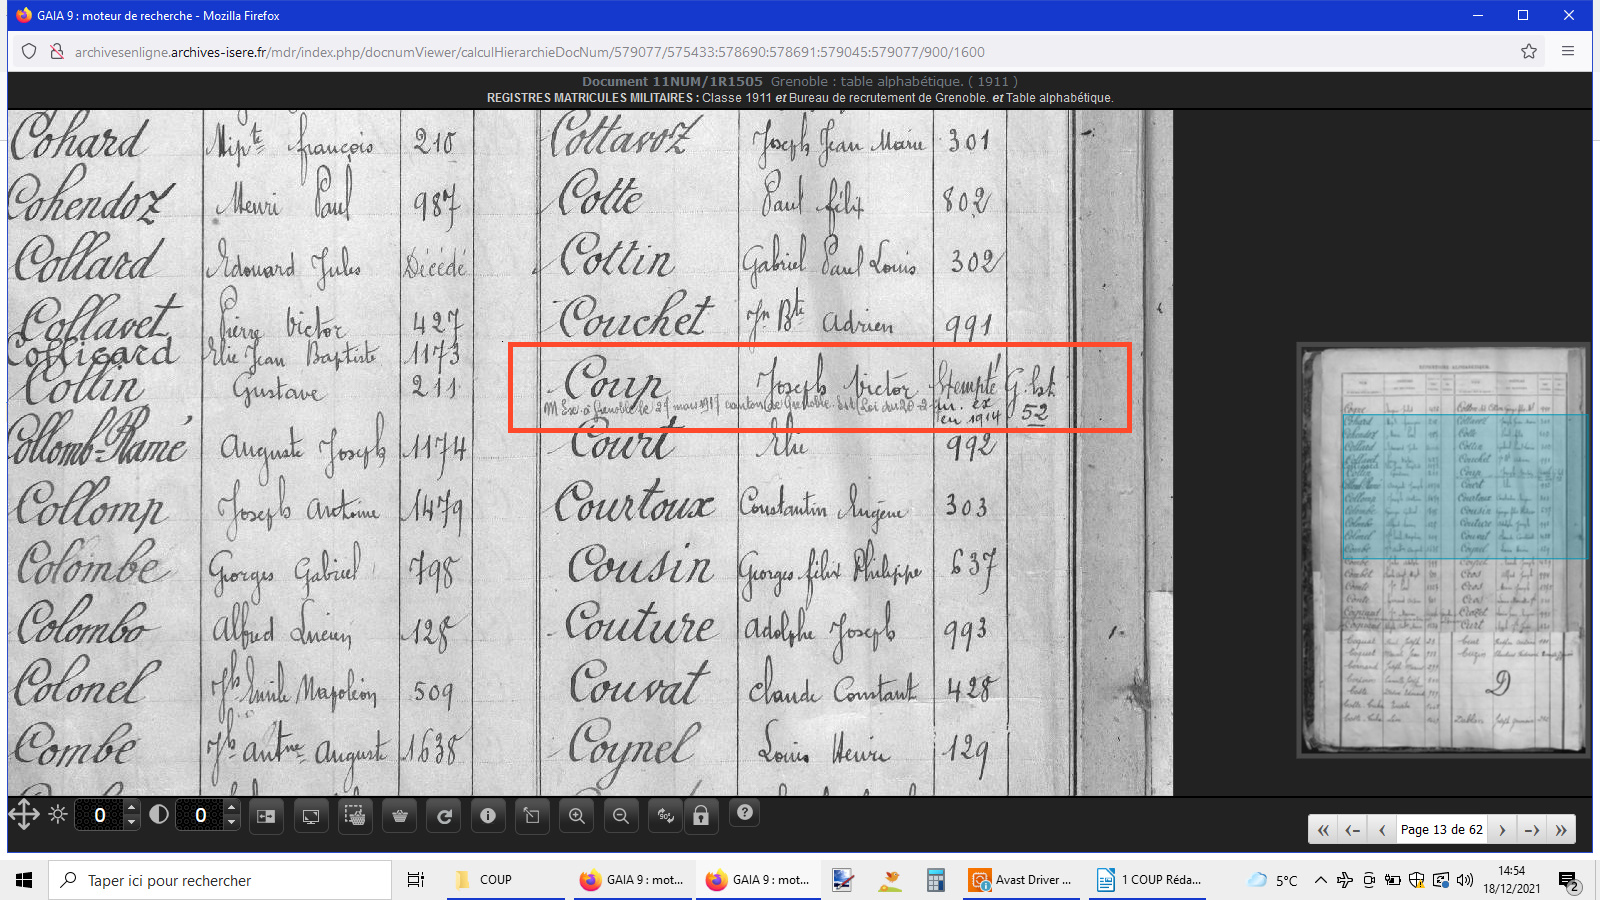 GAIA 9 : moteur de recherche - Mozilla Firefox
archivesenligne.archives-isere.fr/mdr/index.php/docnumViewer/calculHierarchieDocNum/579077/575433:578690:578691:579045:579077/900/1600
Document 11NUM/1R1505 Grenoble : table alphabétique. ( 1911 )
REGISTRES MATRICULES MILITAIRES : Classe 1911 et Bureau de recrutement de Grenoble. et Table alphabétique.
Cohard Hipte françois 210
Cohendoz Henri Paul 987
Collard Edouard Jules Décédé
Collavet Pierre Victor 427
Collicard Elie Jean Baptiste 1173
Collin Gustave 211
Collomb-Ramé Auguste Joseph 1174
Collomp Joseph Antoine 1479
Colombe Georges Gabriel 798
Colombo Alfred Lucien 128
Colonel Jh Emile Napoléon 509
Combe Jh Antne Auguste 1638
Cottavoz Joseph Jean Marie 301
Cotte Paul félix 802
Cottin Gabriel Paul Louis 302
Couchet Jn Bte Adrien 991
Coup Joseph Victor Exempté G. Ist
à Grenoble le 27 mars 1917 canton de Grenoble. Loi du 20 ex
en 1914 52
Court Elie 992
Courtoux Constantin Eugène 303
Cousin Georges félix Philippe 637
Couture Adolphe Joseph 993
Couvat Claude Constant 428
Coynel Louis Henri 129
D
0
0
Page 13 de 62
Taper ici pour rechercher
COUP
GAIA 9 : mot...
GAIA 9 : mot...
Avast Driver ...
1 COUP Réda...
5°C
14:54
18/12/2021
2